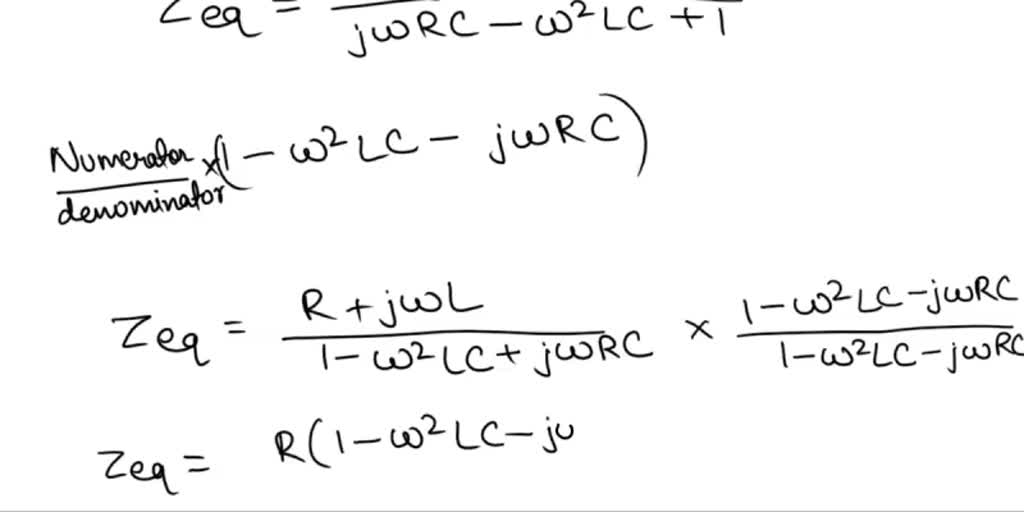 Zeq =
jωRC - ω²LC + 1
Numerator
denominator
x(1 - ω²LC - jωRC)
Zeq = R + jωL / 1 - ω²LC + jωRC x 1 - ω²LC - jωRC / 1 - ω²LC - jωRC
Zeq = R(1 - ω²LC - jω